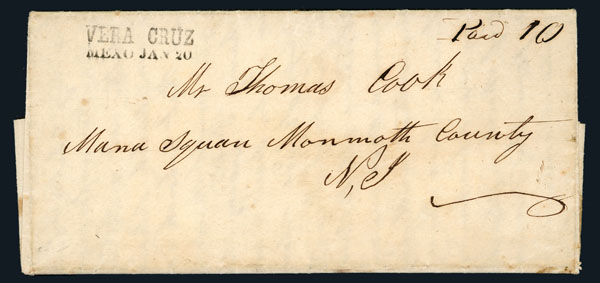 VERA CRUZ
MEXO JAN 20
Paid 10
Mr Thomas Cook
Mana Squan Monmoth County
N, J